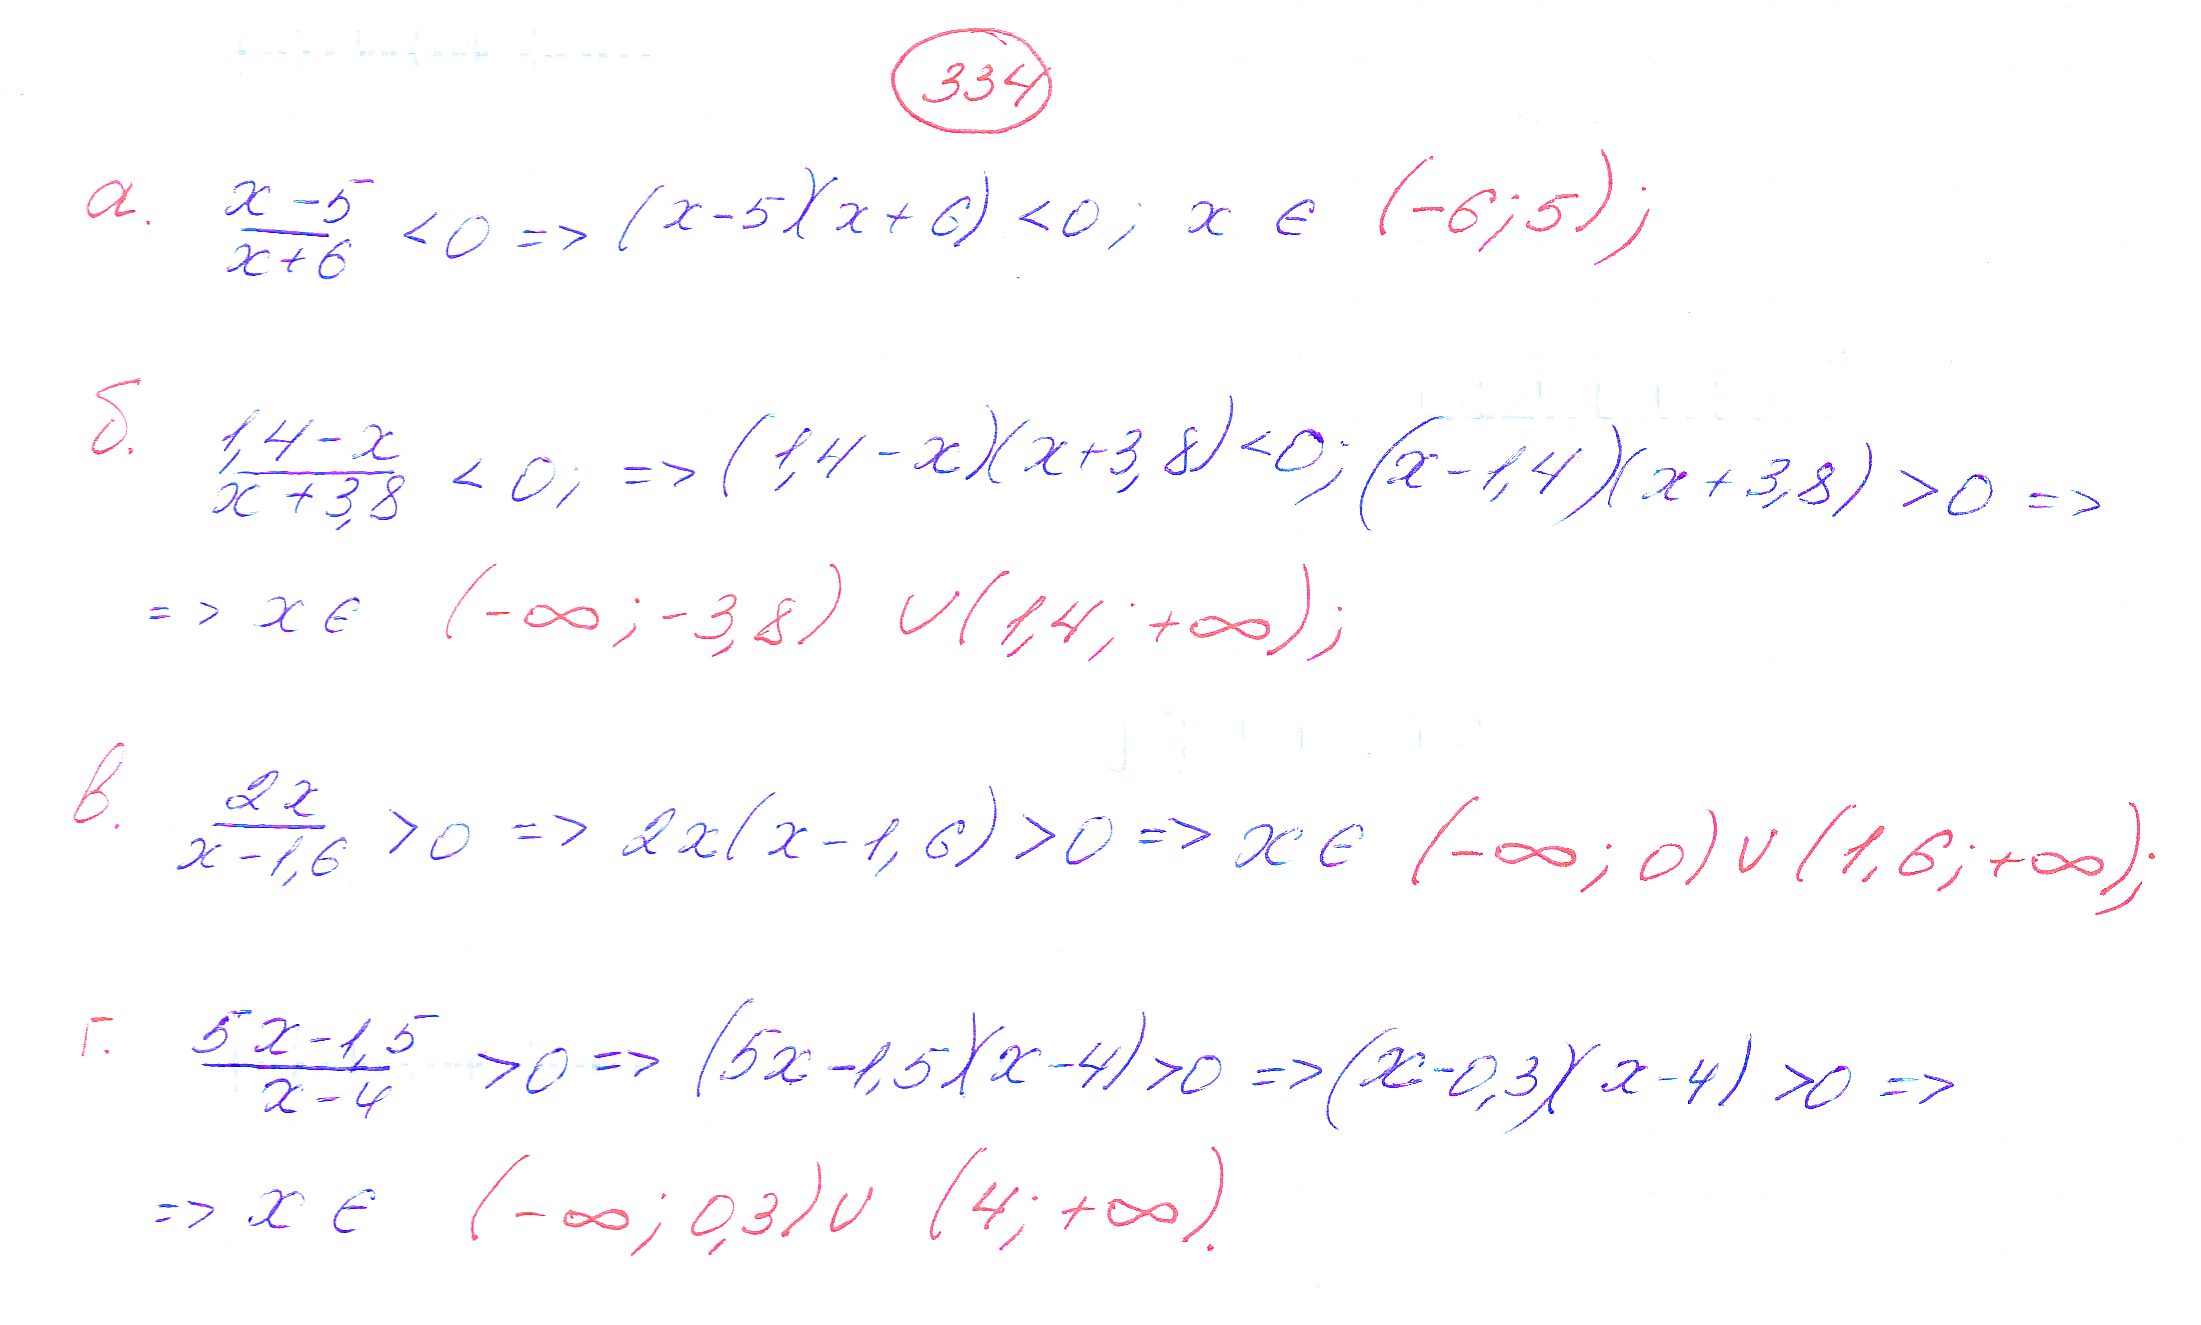 334
а. (x-5)/(x+6) <0 => (x-5)(x+6) <0; x ∈ (-6;5);
б. (1,4-x)/(x+3,8) < 0; => (1,4-x)(x+3,8)<0; (x-1,4)(x+3,8) >0 =>
=> x ∈ (-∞;-3,8) ∪ (1,4; +∞);
в. 2x/(x-1,6) >0 => 2x(x-1,6)>0 => x ∈ (-∞; 0) ∪ (1,6; +∞);
г. (5x-1,5)/(x-4) >0 => (5x-1,5)(x-4)>0 => (x-0,3)(x-4) >0 =>
=> x ∈ (-∞; 0,3) ∪ (4; +∞).